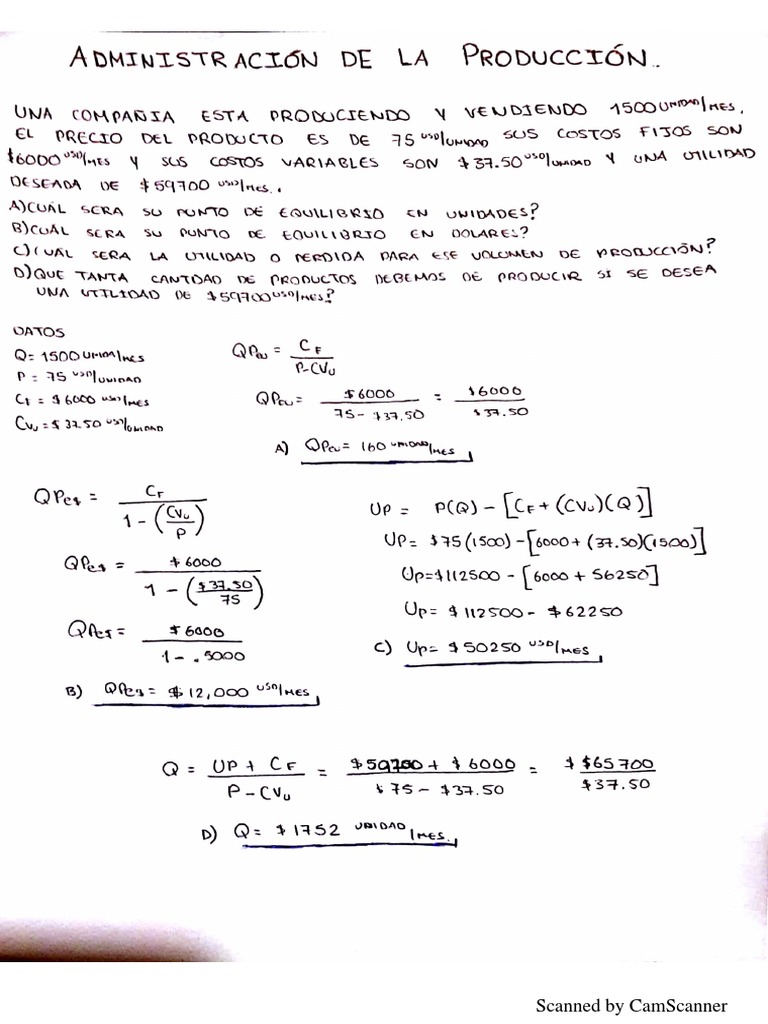 ADMINISTRACIÓN DE LA PRODUCCIÓN..
UNA COMPAÑIA ESTA PRODUCIENDO Y VENDIENDO 1500 UNIDAD/MES.
EL PRECIO DEL PRODUCTO ES DE 75 USD/UNIDAD SUS COSTOS FIJOS SON
$6000 USD/MES Y SUS COSTOS VARIABLES SON $37.50 USD/UNIDAD Y UNA UTILIDAD
DESEADA DE $59700 USD/MES..
A)CUÁL SERA SU PUNTO DE EQUILIBRIO EN UNIDADES?
B)CUÁL SERA SU PUNTO DE EQUILIBRIO EN DOLARES?
C)CUÁL SERA LA UTILIDAD O PERDIDA PARA ESE VOLUMEN DE PRODUCCIÓN?
D)QUE TANTA CANTIDAD DE PRODUCTOS DEBEMOS DE PRODUCIR SI SE DESEA
UNA UTILIDAD DE $59700 USD/MES?
DATOS
Q= 1500 UNIDAD/MES
P = 75 USD/UNIDAD
CF = $6000 USD/MES
CVU = $ 37.50 USD/UNIDAD
QPEU = CF / P-CVU
QPEU = $6000 / 75 - $37.50 = $6000 / $37.50
A) QPEU = 160 UNIDAD/MES
QPE$ = CF / 1 - (CVU / P)
QPE$ = $6000 / 1 - ($37.50 / 75)
QPE$ = $6000 / 1 - .5000
B) QPE$ = $12,000 USD/MES
UP = P(Q) - [CF + (CVU)(Q)]
UP = $75(1500) - [6000 + (37.50)(1500)]
UP=$112500 - [6000 + 56250]
UP = $112500 - $62250
C) UP= $50250 USD/MES
Q = UP + CF / P - CVU = $59700 + $6000 / $75 - $37.50 = $ $65700 / $37.50
D) Q= $1752 UNIDAD/MES.
Scanned by CamScanner